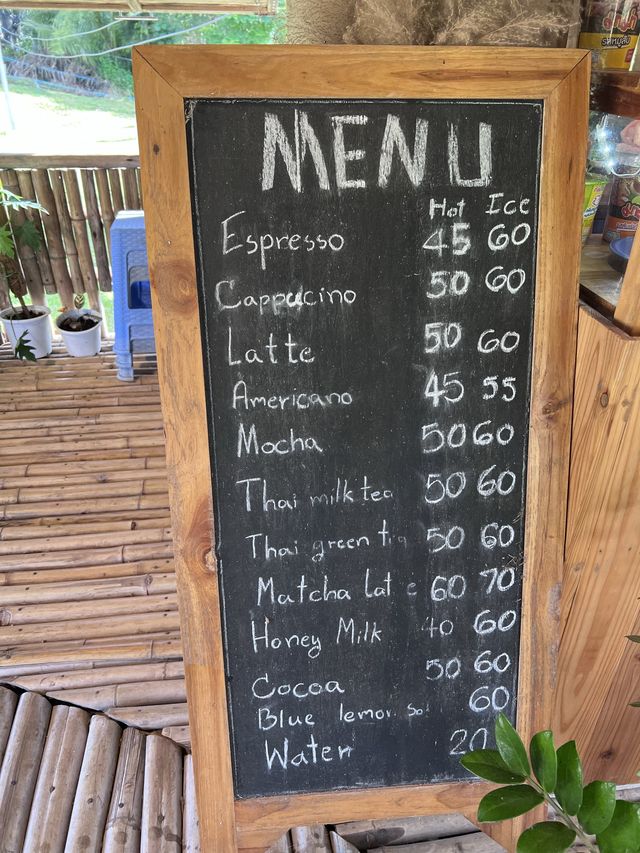 MENU
Hot Ice
Espresso 45 60
Cappucino 50 60
Latte 50 60
Americano 45 55
Mocha 50 60
Thai milk tea 50 60
Thai green 50 60
Matcha Lat e 60 70
Honey Milk 40 60
Cocoa 50 60
Blue lemon So 60
Water 20